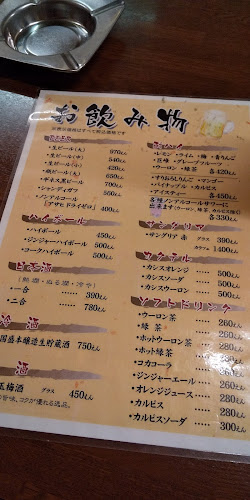 お飲み物
・生ビール(大) 970えん
・生ビール(中) 540えん
・生ビール(小)
・瓶ビール(大)
・ギネス黒ビール
・シャンディガフ 500えん
・ノンアルコール
(アサヒ ドライゼロ) 400えん
ハイボール
・ハイボール 450えん
・ジンジャーハイボール 500えん
・コークハイボール 500えん
日本酒
(熱燗・ぬる燗・冷や)
・一合 390えん
・二合 780えん
冷酒
国盛本醸造生貯蔵酒 750えん
玉梅酒 グラス 450えん
・レモン・ライム・梅・青りんご
・巨峰・グレープフルーツ
・ウーロン・緑茶 各420えん
・すりおろしりんご・マンゴー
・パイナップル・カルピス
・アイスティー 各450えん
サングリア
・サングリア 赤 グラス 390えん
カクテル
・カシスオレンジ 500えん
・カシスソーダ 500えん
・カシスウーロン 500えん
ソフトドリンク
・ウーロン茶 200えん
・緑茶 200えん
・ホットウーロン茶 200えん
・ホット緑茶 200えん
・コカコーラ 280えん
・ジンジャーエール 280えん
・オレンジジュース 280えん
・カルピス 280えん
・カルピスソーダ 300えん